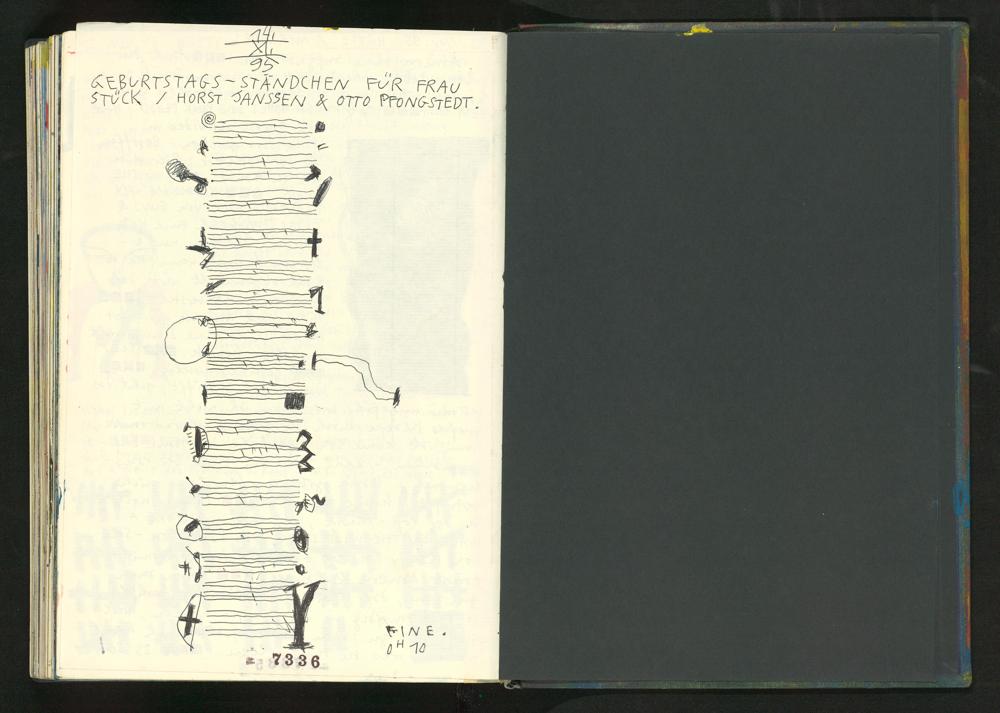 14.
XI.
95
GEBURTSTAGS-STÄNDCHEN FÜR FRAU
STÜCK / HORST JANSSEN & OTTO PFONGSTEDT.
FINE.
0H10
= 7336